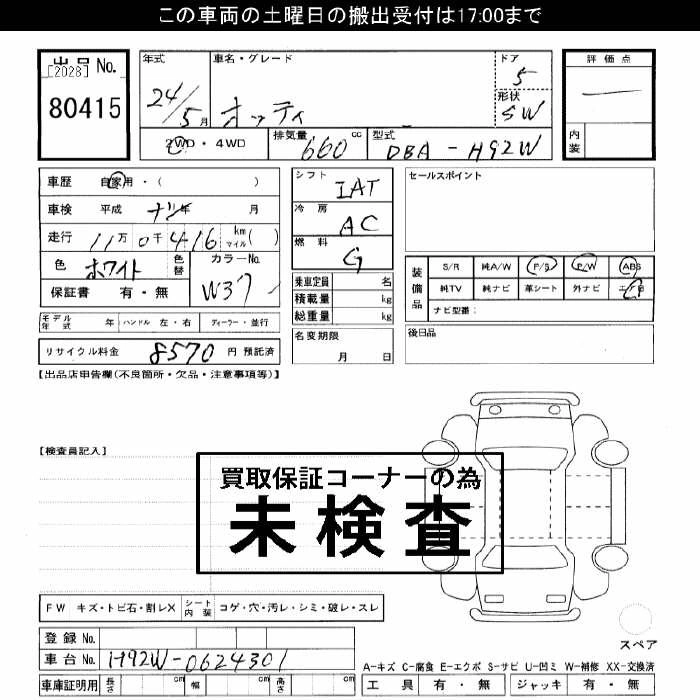 この車両の土曜日の搬出受付は17:00まで
出品No.
[2028]
80415
年式
24/5月
車名・グレード
オッティ
ドア
5
形状
SW
評価点
内装
2WD・4WD
排気量
660 cc
型式
DBA-H92W
車歴 自家用・( )
車検 平成 ナシ年 月
走行 11万0千416 km マイル( )
色 ホワイト 色替
カラーNo.
W37
保証書 有・無
シフト
IAT
冷房
AC
燃料
G
乗車定員 名
積載量 kg
総重量 kg
名変期限
月 日
セールスポイント
装備品
S/R 純A/W P/S P/W ABS
純TV 純ナビ 革シート 外ナビ エアB
ナビ型番:
後日品
モデル年式 年 ハンドル 左・右 ディーラー・並行
リサイクル料金 8570 円 預託済
【出品店申告欄(不良箇所・欠品・注意事項等)】
【検査員記入】
買取保証コーナーの為
未検査
FW キズ・トビ石・割レX
シート内装 コゲ・穴・汚レ・シミ・破レ・スレ
登録No.
車台No. H92W-0624301
車庫証明用 長さ cm 幅 cm 高さ cm
スペア
A-キズ C-腐食 E-エクボ S-サビ U-凹ミ W-補修 XX-交換済
工具 有・無 ジャッキ 有・無